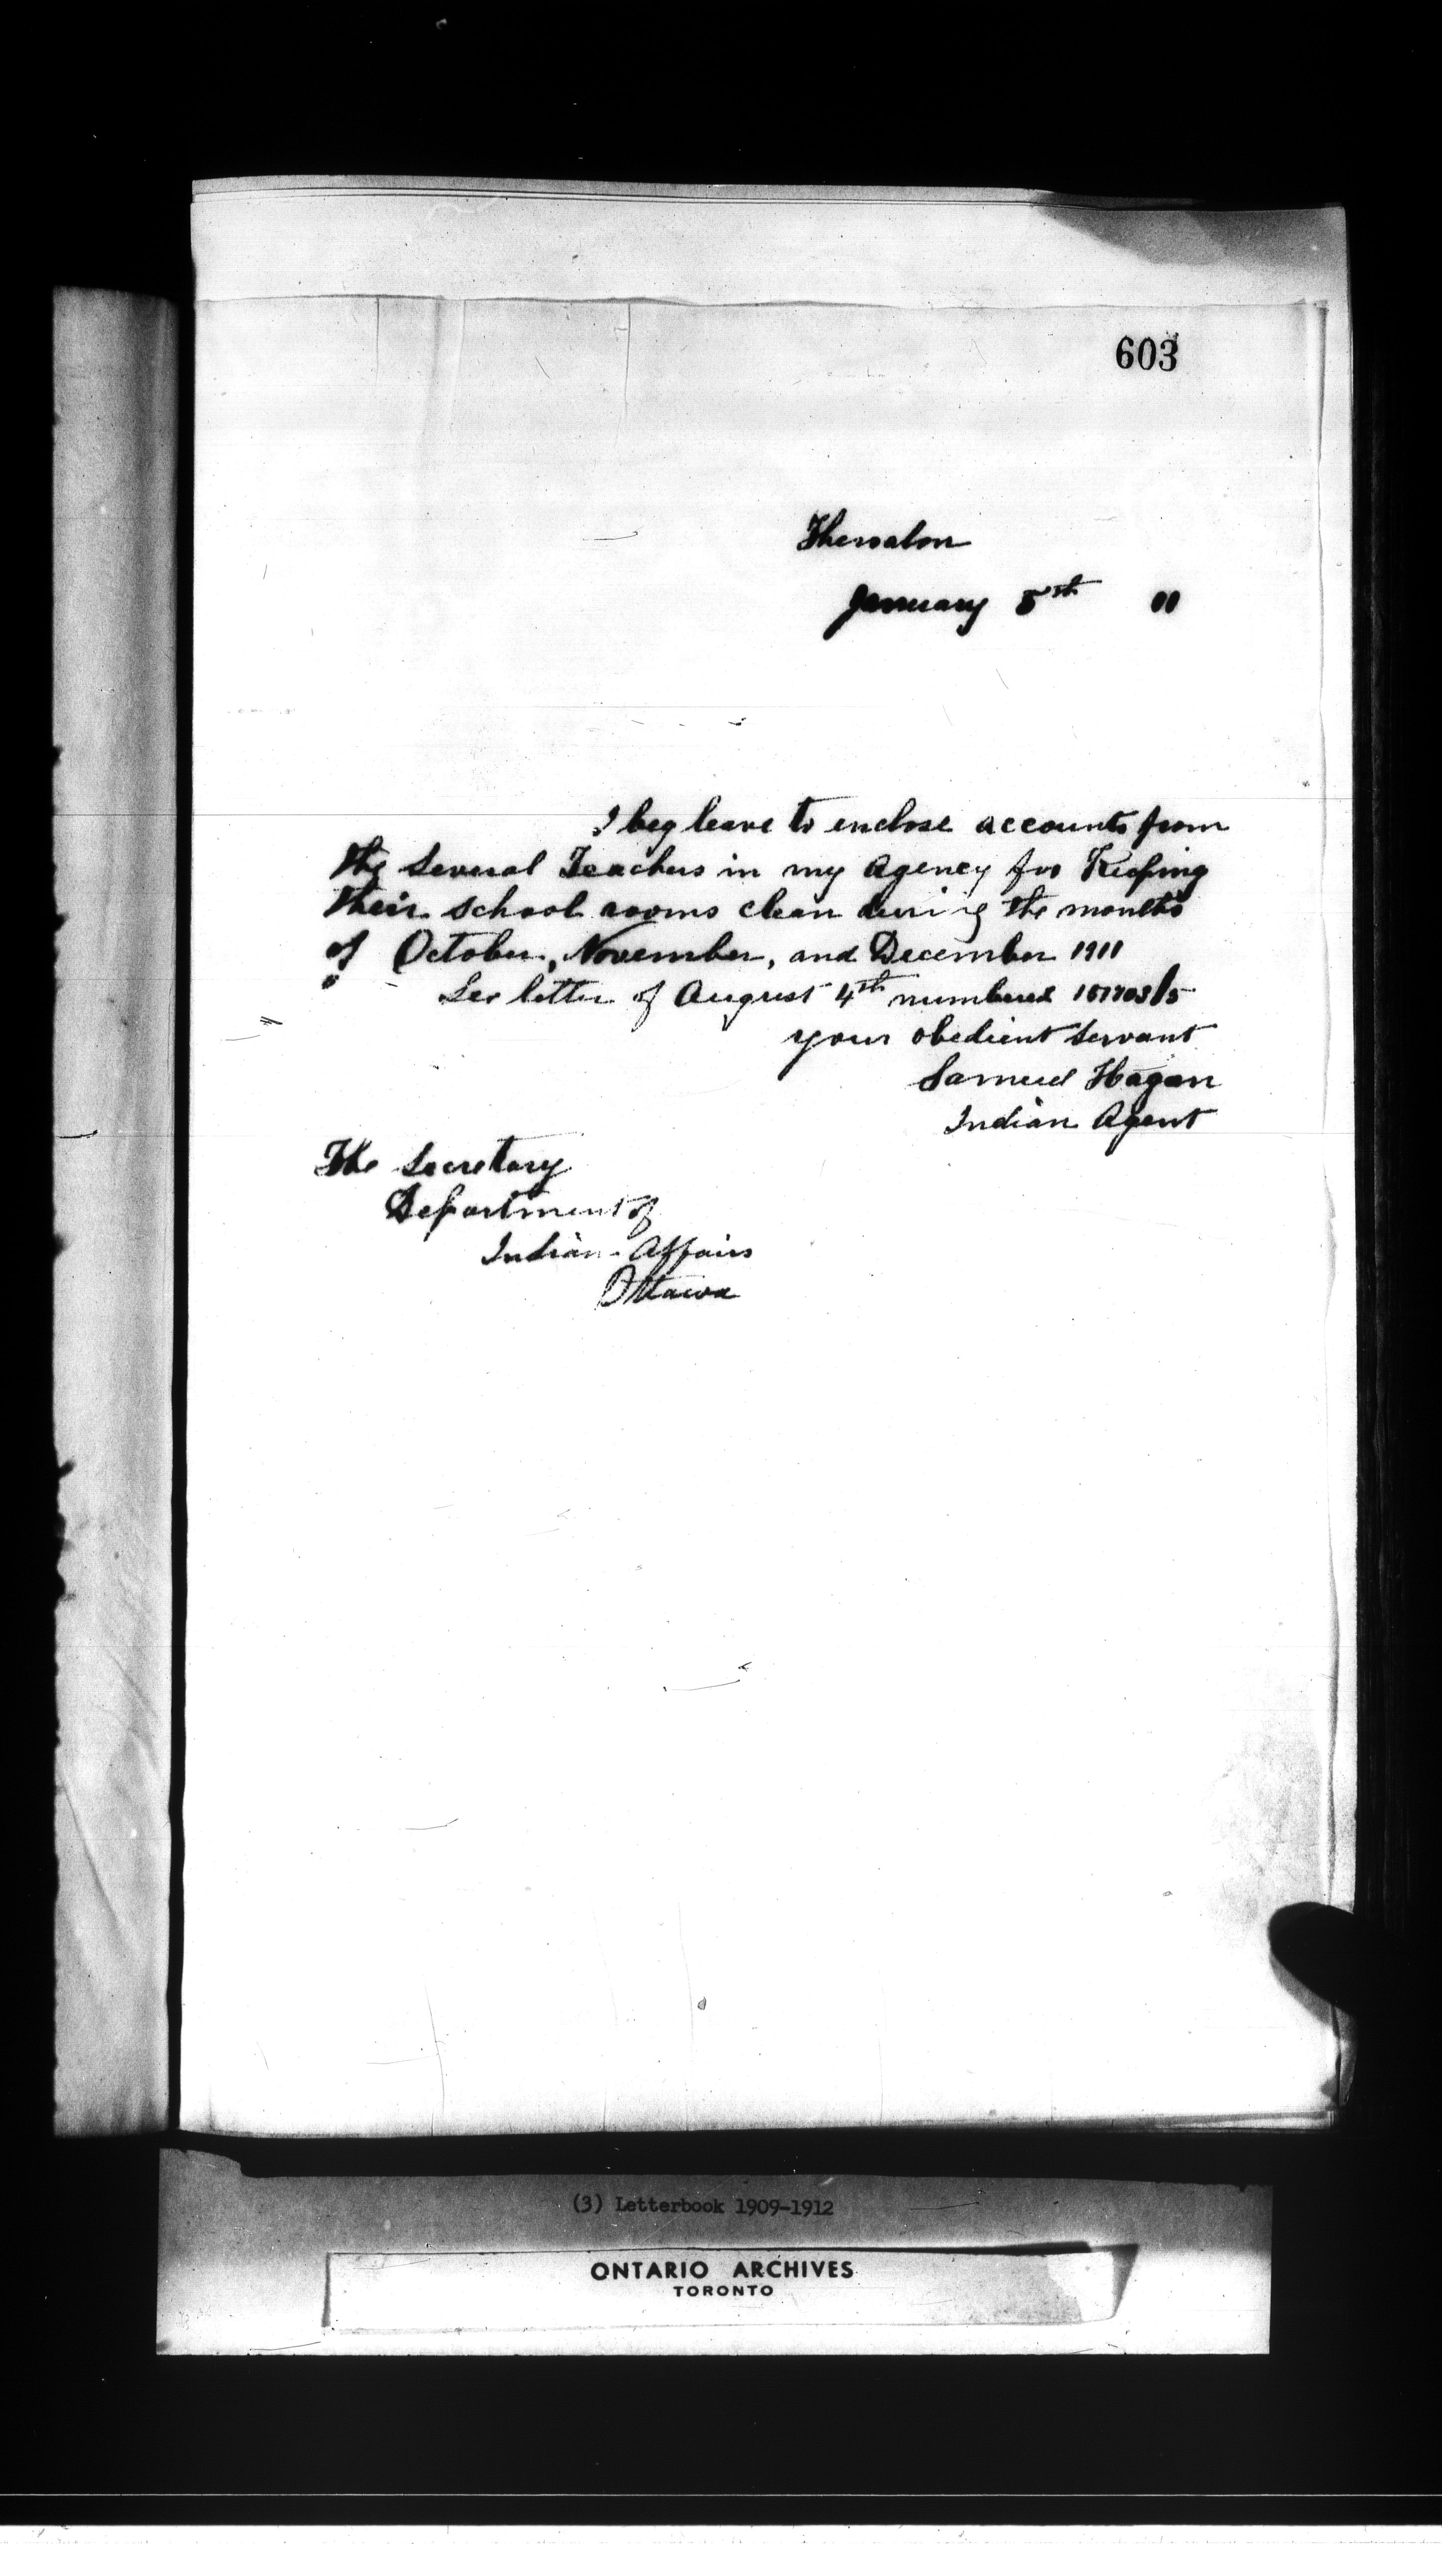 603
Thessalon
January 5th 11
I beg leave to enclose accounts from
the several Teachers in my Agency for Keeping
their school rooms clean during the months
of October, November, and December 1911
See letter of August 4th numbered
your obedient servant
Samuel Hagan
Indian Agent
The Secretary
Department of
Indian Affairs
Ottawa
(3) Letterbook 1909-1912
ONTARIO ARCHIVES
TORONTO